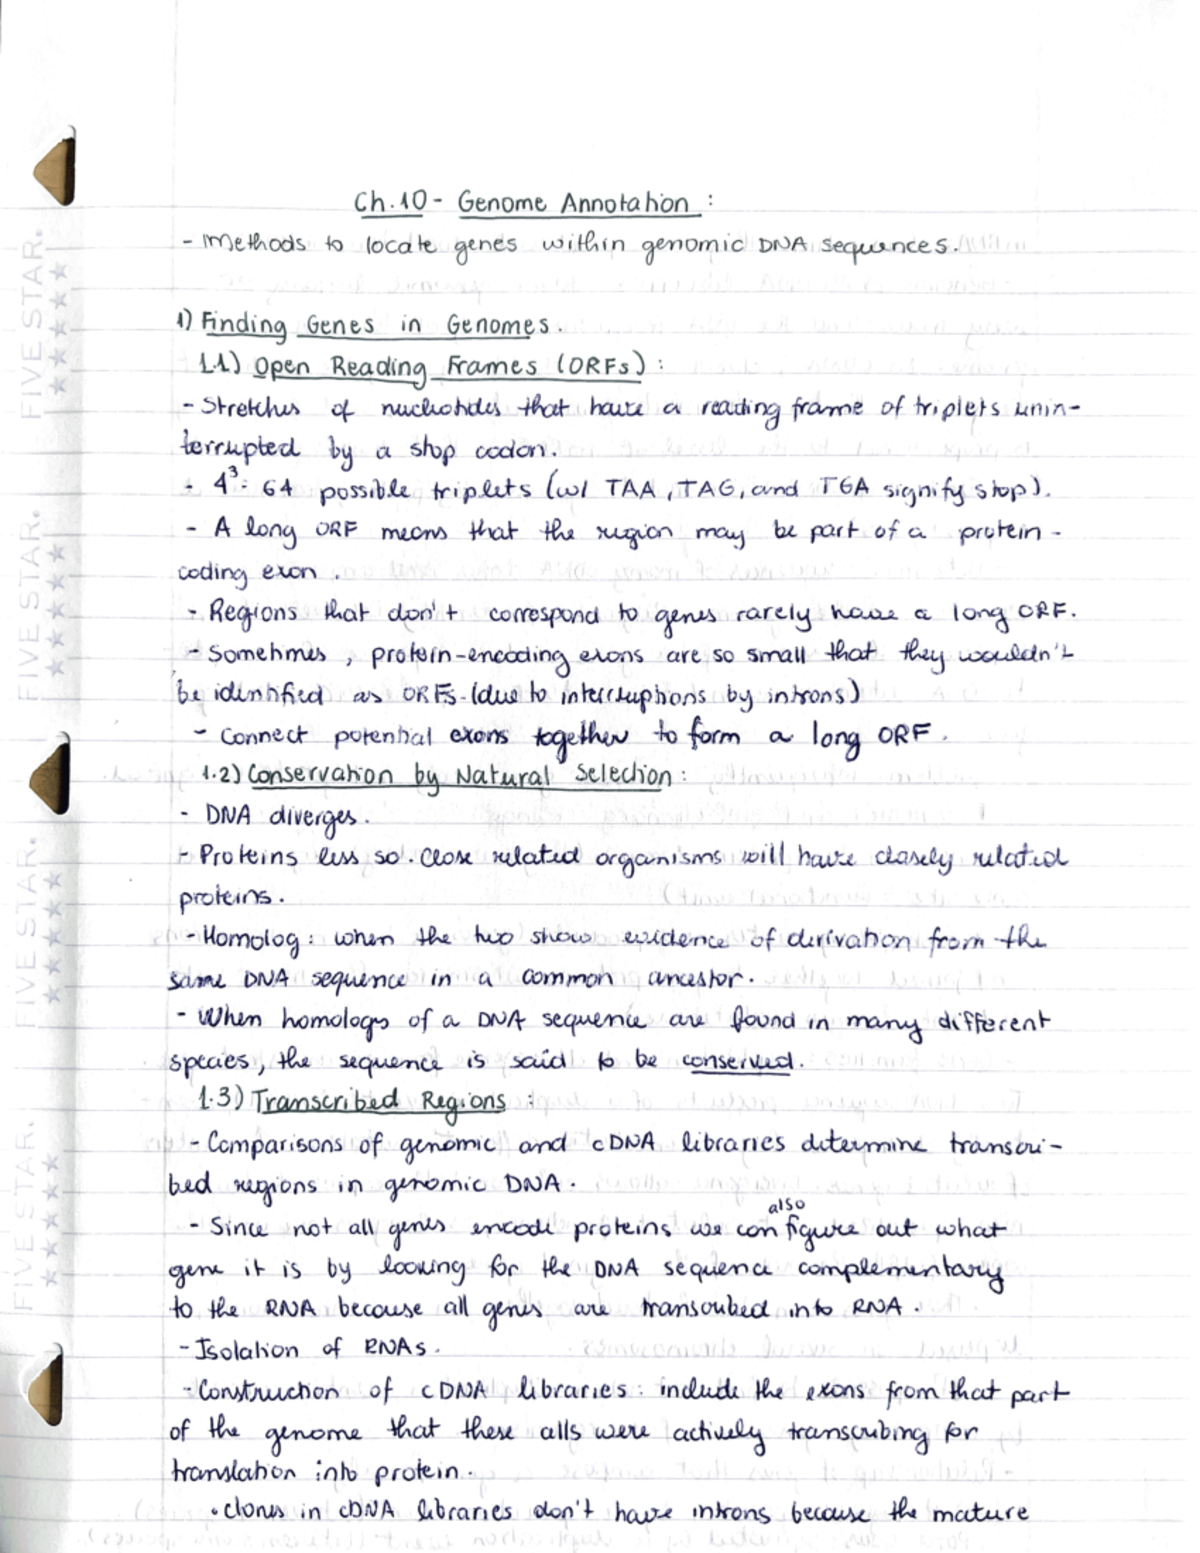 Ch.10 - Genome Annotation :
- Methods to locate genes within genomic DNA sequences.
1) Finding Genes in Genomes.
1.1) Open Reading Frames (ORFs) :
- Stretches of nucleotides that have a reading frame of triplets unin-
terrupted by a stop codon.
- 4³= 64 possible triplets (w/ TAA, TAG, and TGA signify stop).
- A long ORF means that the region may be part of a protein-
coding exon.
- Regions that don't correspond to genes rarely have a long ORF.
- Sometimes, protein-encoding exons are so small that they wouldn't
be identified as ORFs (due to interruptions by introns)
- Connect potential exons together to form a long ORF.
1.2) Conservation by Natural Selection:
- DNA diverges.
- Proteins less so. Close related organisms will have closely related
proteins.
- Homolog: when the two show evidence of derivation from the
same DNA sequence in a common ancestor.
- When homologs of a DNA sequence are found in many different
species, the sequence is said to be conserved.
1.3) Transcribed Regions :
- Comparisons of genomic and cDNA libraries determine transcri-
bed regions in genomic DNA.
also
- Since not all genes encode proteins we can figure out what
gene it is by looking for the DNA sequence complementary
to the RNA because all genes are transcribed into RNA.
- Isolation of RNAs.
- Construction of cDNA libraries: include the exons from that part
of the genome that these cells were actively transcribing for
translation into protein.
• Clones in cDNA libraries don't have introns because the mature
FIVE STAR.
FIVE STAR.
FIVE STAR.
FIVE STAR.